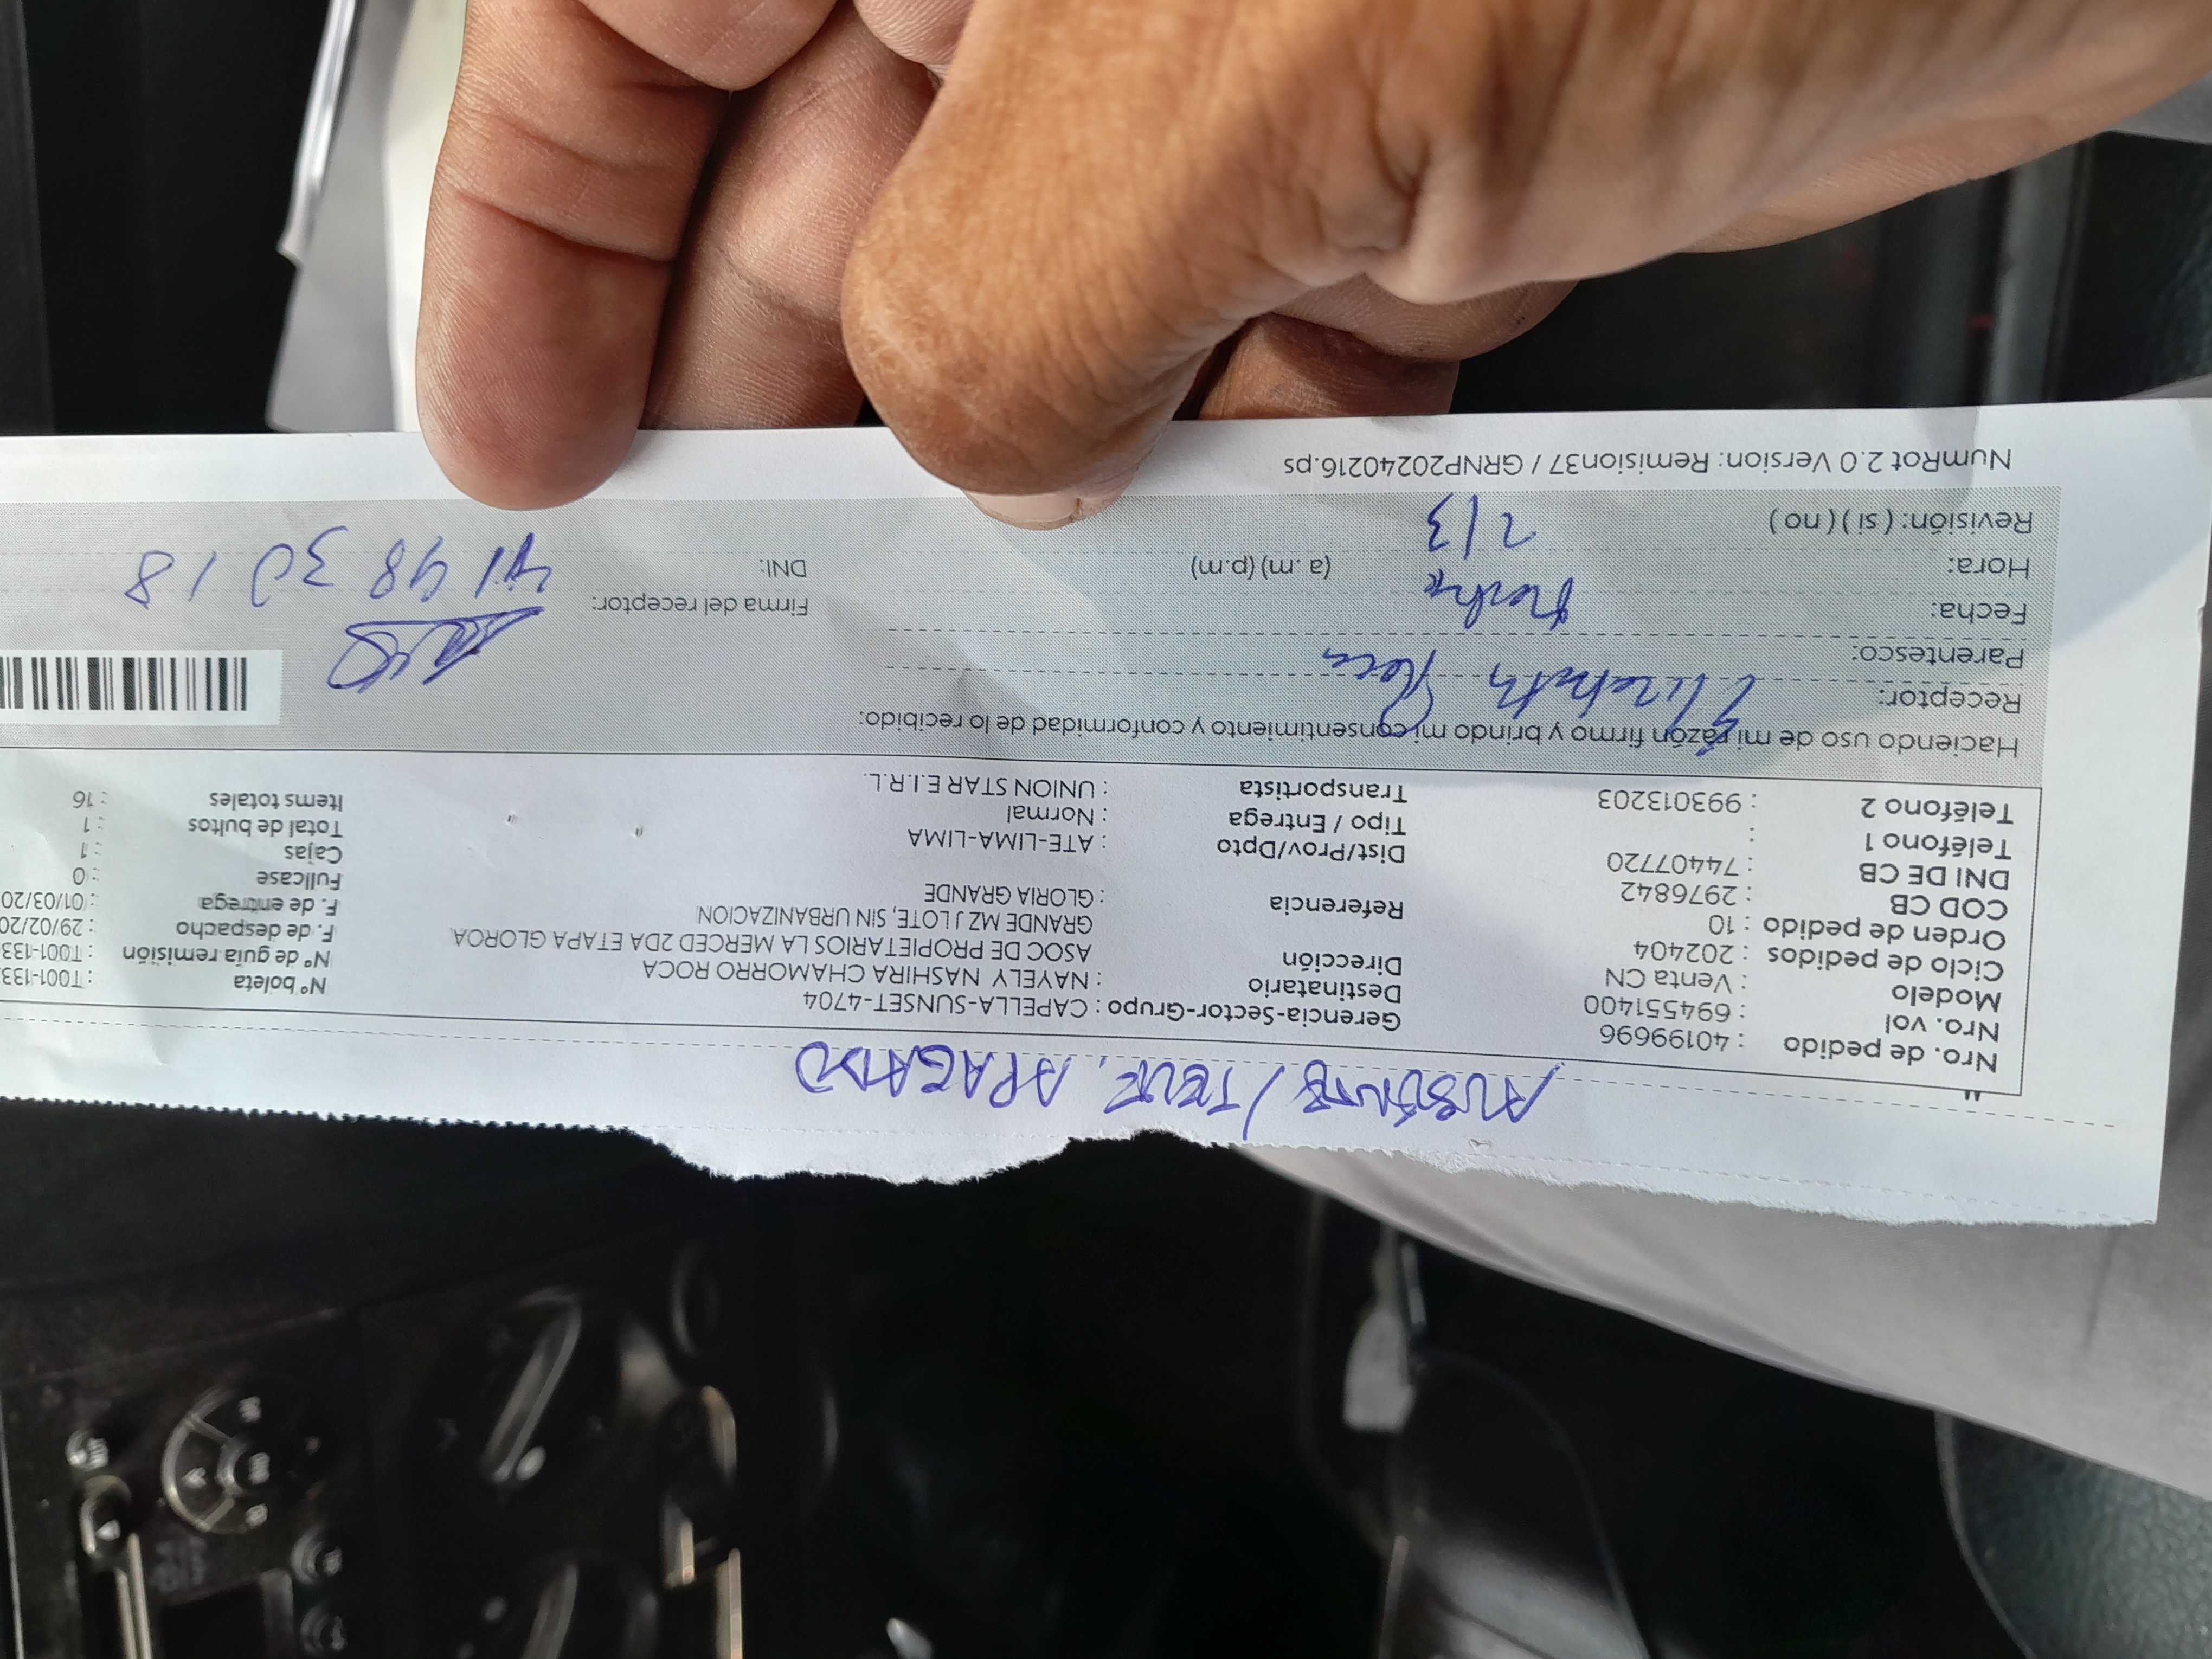 AUSENTE / TELF. APAGADO
Nro. de pedido : 40199696
Nro. vol : 694551400
Modelo : Venta CN
Ciclo de pedidos : 202404
Orden de pedido : 10
COD CB : 2976842
DNI DE CB : 74407720
Teléfono 1 :
Teléfono 2 : 993013203
Gerencia-Sector-Grupo : CAPELLA-SUNSET-4704
Destinatario : NAYELY NASHIRA CHAMORRO ROCA
Dirección ASOC DE PROPIETARIOS LA MERCED 2DA ETAPA GLOROA
GRANDE MZ J LOTE, SIN URBANIZACION
Referencia : GLORIA GRANDE
Dist/Prov/Dpto : ATE-LIMA-LIMA
Tipo / Entrega : Normal
Transportista : UNION STAR E.I.R.L.
N° boleta : T001-133
N° de guía remisión : T001-133
F. de despacho : 29/02/20
F. de entrega : 01/03/20
Fullcase : 0
Cajas : 1
Total de bultos : 1
Items totales : 16
Haciendo uso de mi razón firmo y brindo mi consentimiento y conformidad de lo recibido:
Receptor: Elizabeth Roca
Parentesco:
Fecha:
Hora: (a. m) (p.m)
Revisión: ( si ) ( no ) 2/3
Firma del receptor:
DNI: 41983018
NumRot 2.0 Version: Remision37 / GRNP20240216.ps